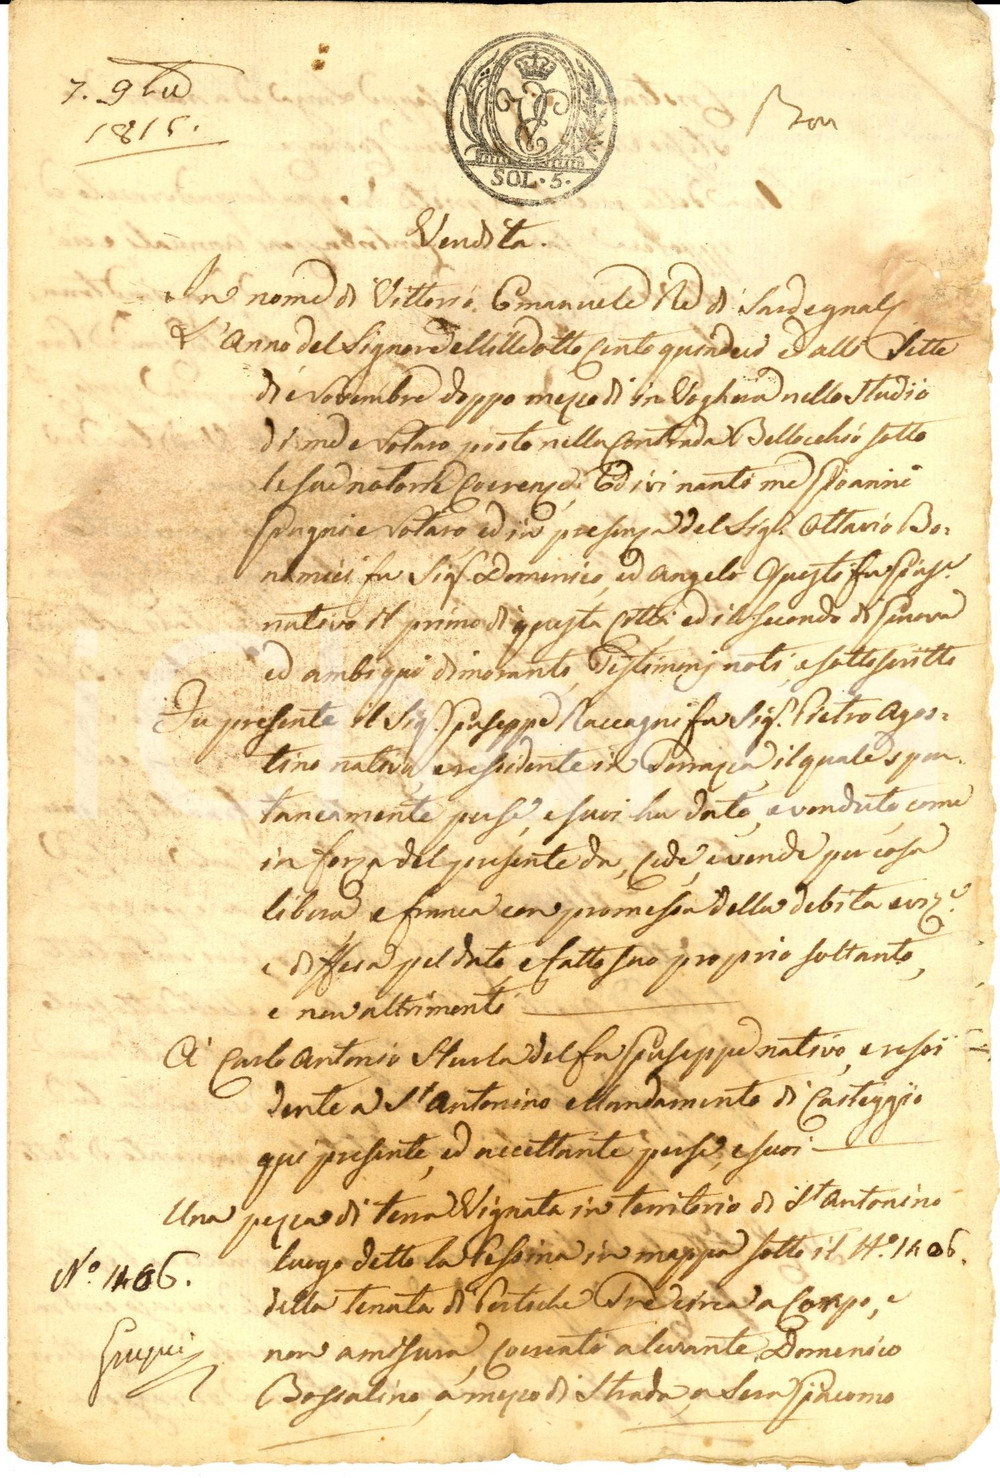 7. 9bre
1815.
SOL. 5.
Vendita.
In nome di Vittorio Emanuele Re di Sardegna
L'Anno del Signore Mille otto Cento quindeci ed alli Sette
di Novembre doppo mezzodi in Voghera nello Studio
di me Notaro posto nella Contrada Bellocchio sotto
le sue notorie Coerenze, Ed ivi nanti me Gioanni
Pugni Notaro, ed in presenza del Sig. Ottavio Bo-
namici fu Sig. Domenico, ed Angelo Questo fu Gius.e
nativo il primo di questa Città, ed il secondo di Genova
ed ambi qui dimoranti, Testimonj noti, e sottoscritti
Fu presente il Sig. Giuseppe Raccagni fu Sig. Pietro Agos-
tino nativo, e residente in Torrazza, il quale spon-
taneamente per se, e suoi ha dato, e venduto, come
in forza del presente da, Cede, e vende per cosa
libera e franca con promessa della debita eviz.e
e diffesa pel dato, e fatto suo proprio soltanto,
e non altrimenti
A' Carlo Antonio Sturla del fu Giuseppe nativo, e resi
dente a St Antonino Mandamento di Casteggio
qui presente, ed accettante per se, e suoi
Una pezza di terra Vignata in territorio di St Antonino
luogo detto la Pessina in mappa sotto il N.o 1406.
N.o 1406.
della tenuta di Pertiche Tre circa a Corpo, e
non a misura, Coerenti a levante Domenico
Bossalino, a mezzodi Strada, a Sera Giacomo